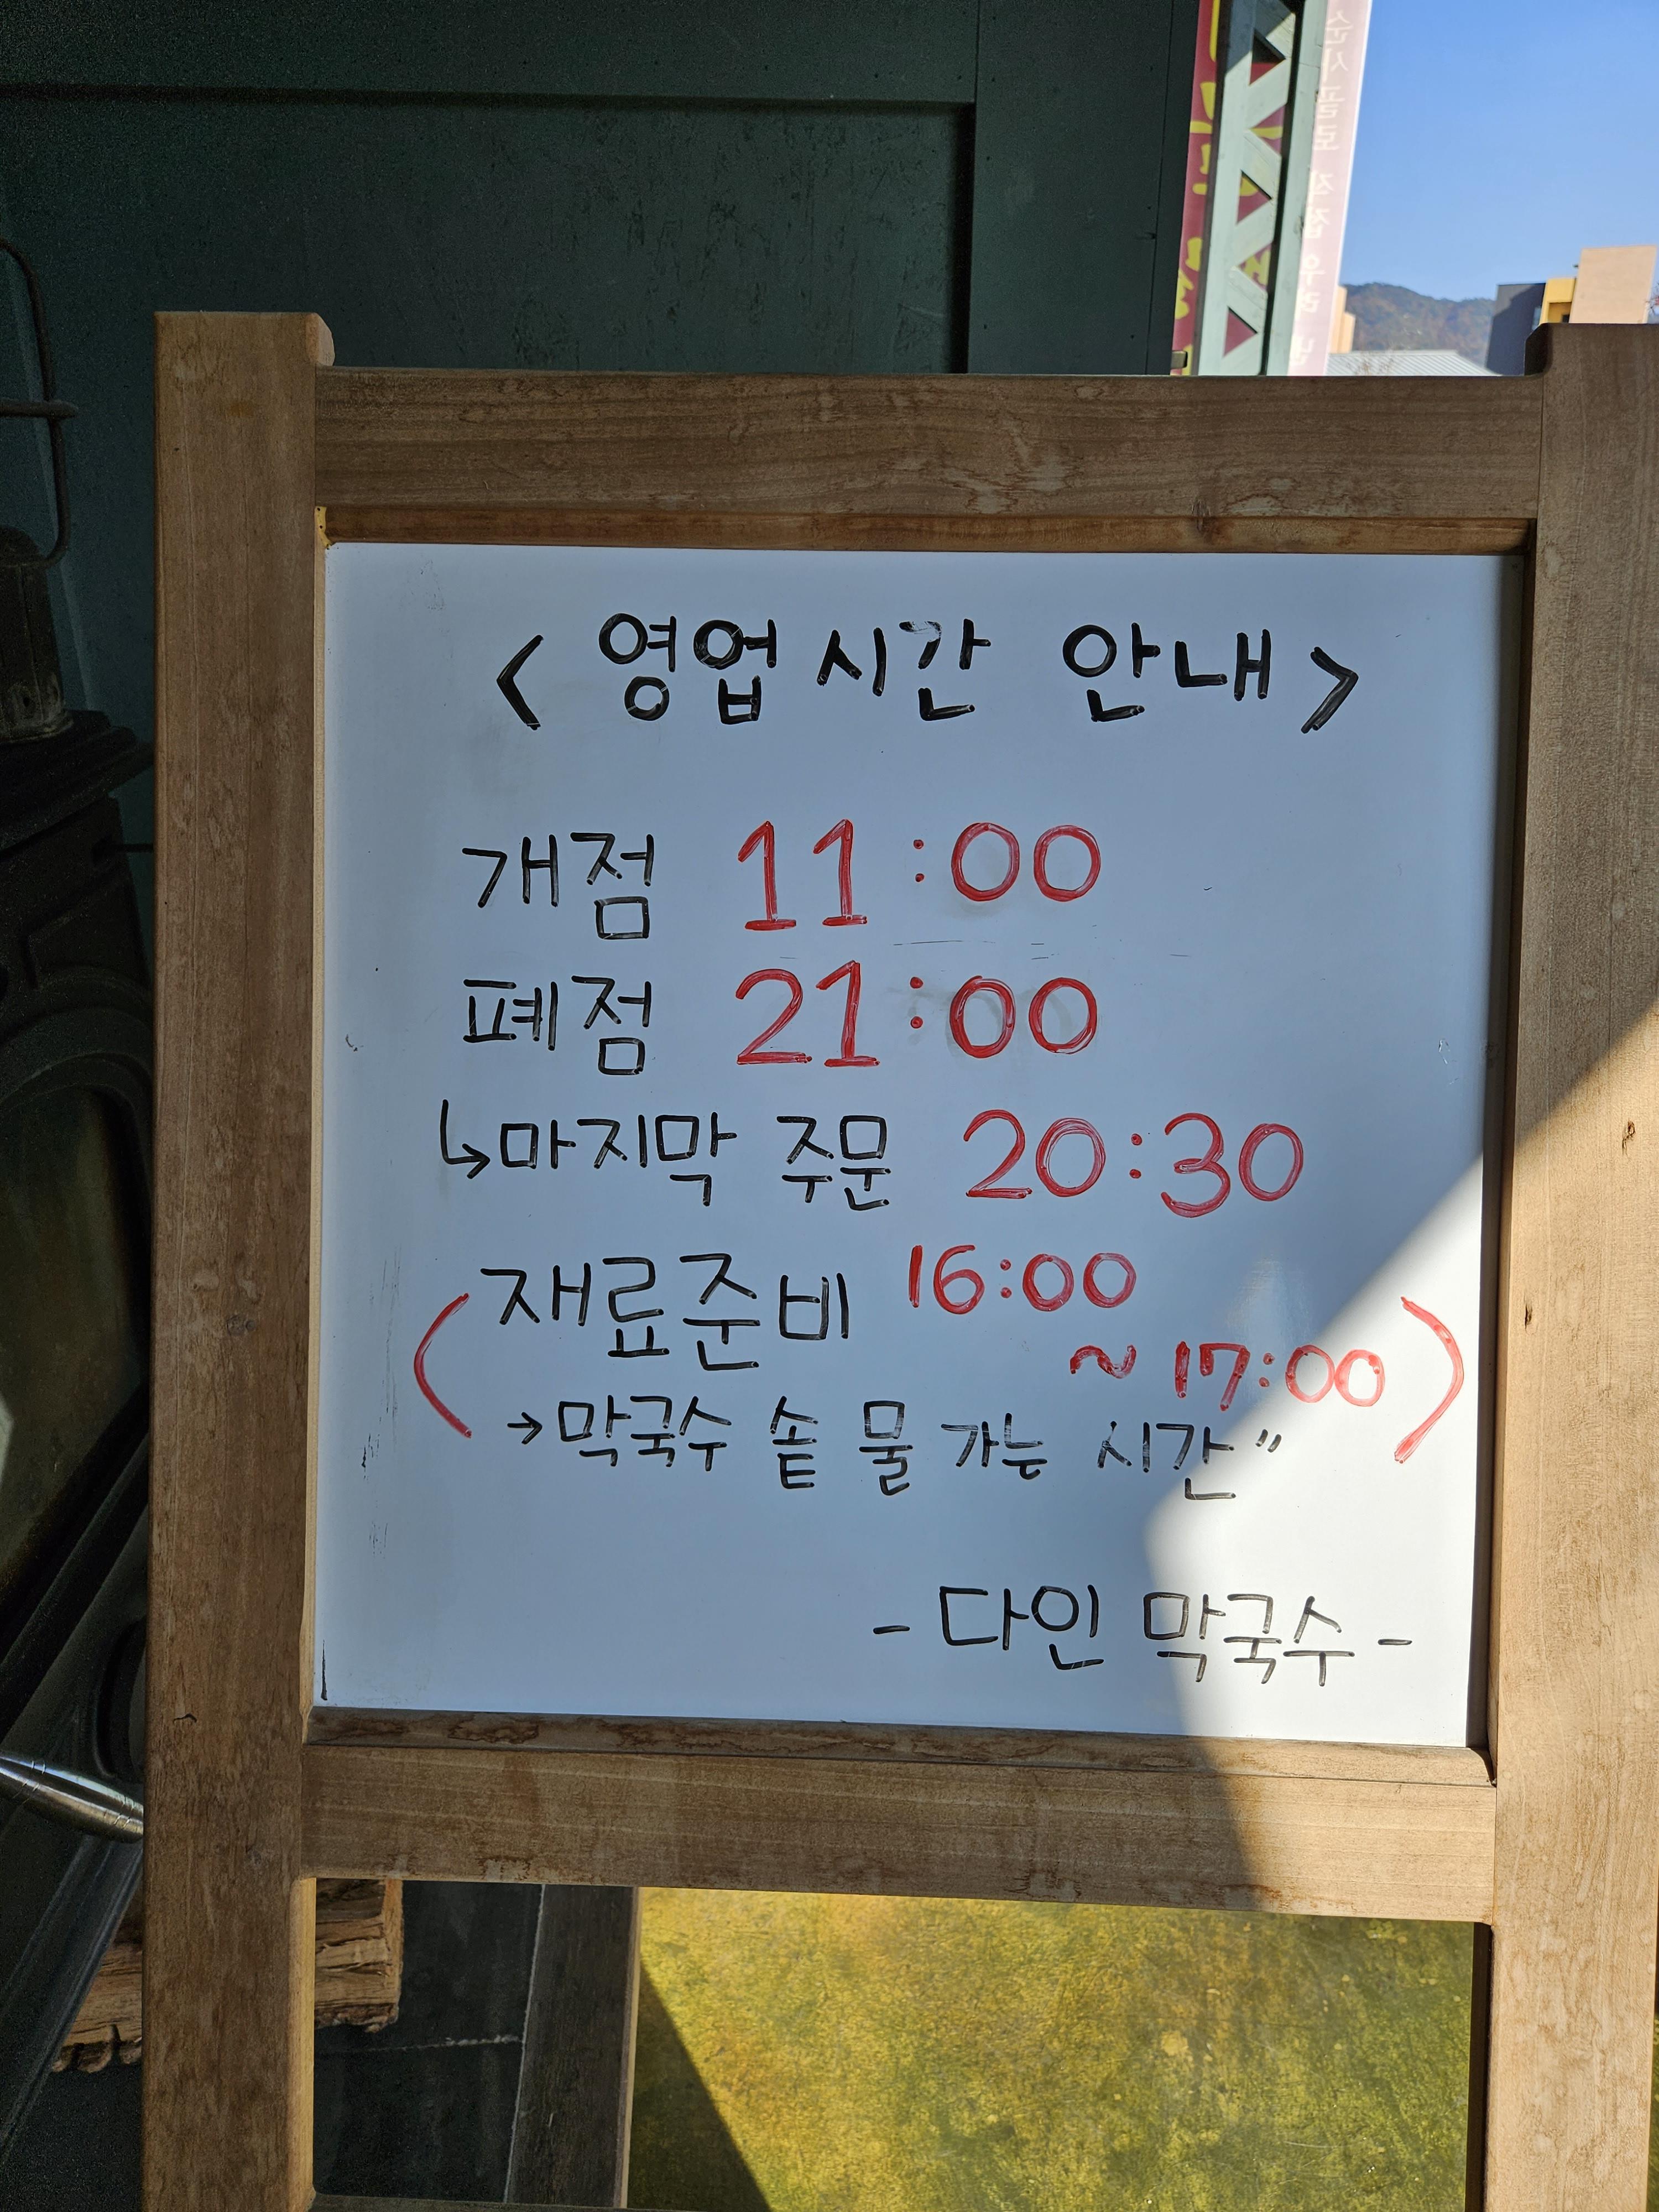 < 영업시간 안내 >
개점 11:00
폐점 21:00
↳마지막 주문 20:30
(재료준비 16:00
~ 17:00)
→막국수 솥 물 가는 시간"
- 다인 막국수 -